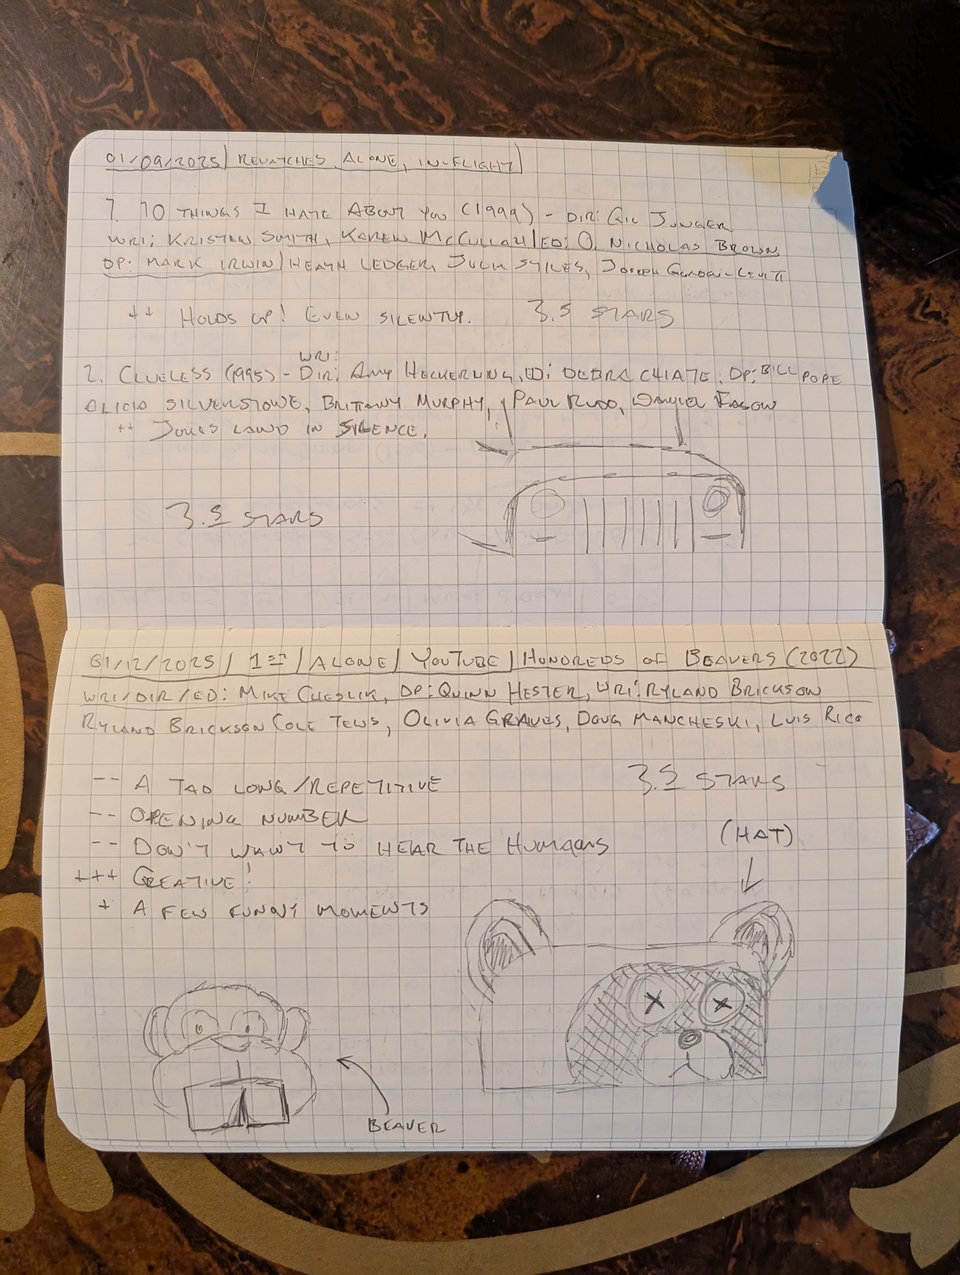 01/09/2025 | REWATCHES ALONE, IN-FLIGHT |
1. 10 THINGS I HATE ABOUT YOU (1999) - DIR: GIL JUNGER
WRI: KRISTEN SMITH, KAREN MCCULLAH | ED: O. NICHOLAS BROWN
DP: MARK IRWIN | HEATH LEDGER, JULIA STILES, JOSEPH GORDON-LEVITT
++ HOLDS UP! EVEN SILENTLY. 3.5 STARS
WRI:
2. CLUELESS (1995) - DIR: AMY HECKERLING, ED: DEBRA CHIATE, DP: BILL POPE
ALICIA SILVERSTONE, BRITTANY MURPHY, PAUL RUDD, DONALD FAISON
++ JOKES LAND IN SILENCE.
3.5 STARS
01/12/2025 | 1ST | ALONE | YOUTUBE | HUNDREDS OF BEAVERS (2022)
WRI/DIR/ED: MIKE CHESLIK, DP: QUINN HESTER, WRI: RYLAND BRICKSON
RYLAND BRICKSON COLE TEWS, OLIVIA GRAVES, DOUG MANCHESKI, LUIS RICO
-- A TAD LONG/REPETITIVE 3.5 STARS
-- OPENING NUMBER
-- DON'T WANT TO HEAR THE HUMANS (HAT)
+++ CREATIVE!
+ A FEW FUNNY MOMENTS
BEAVER